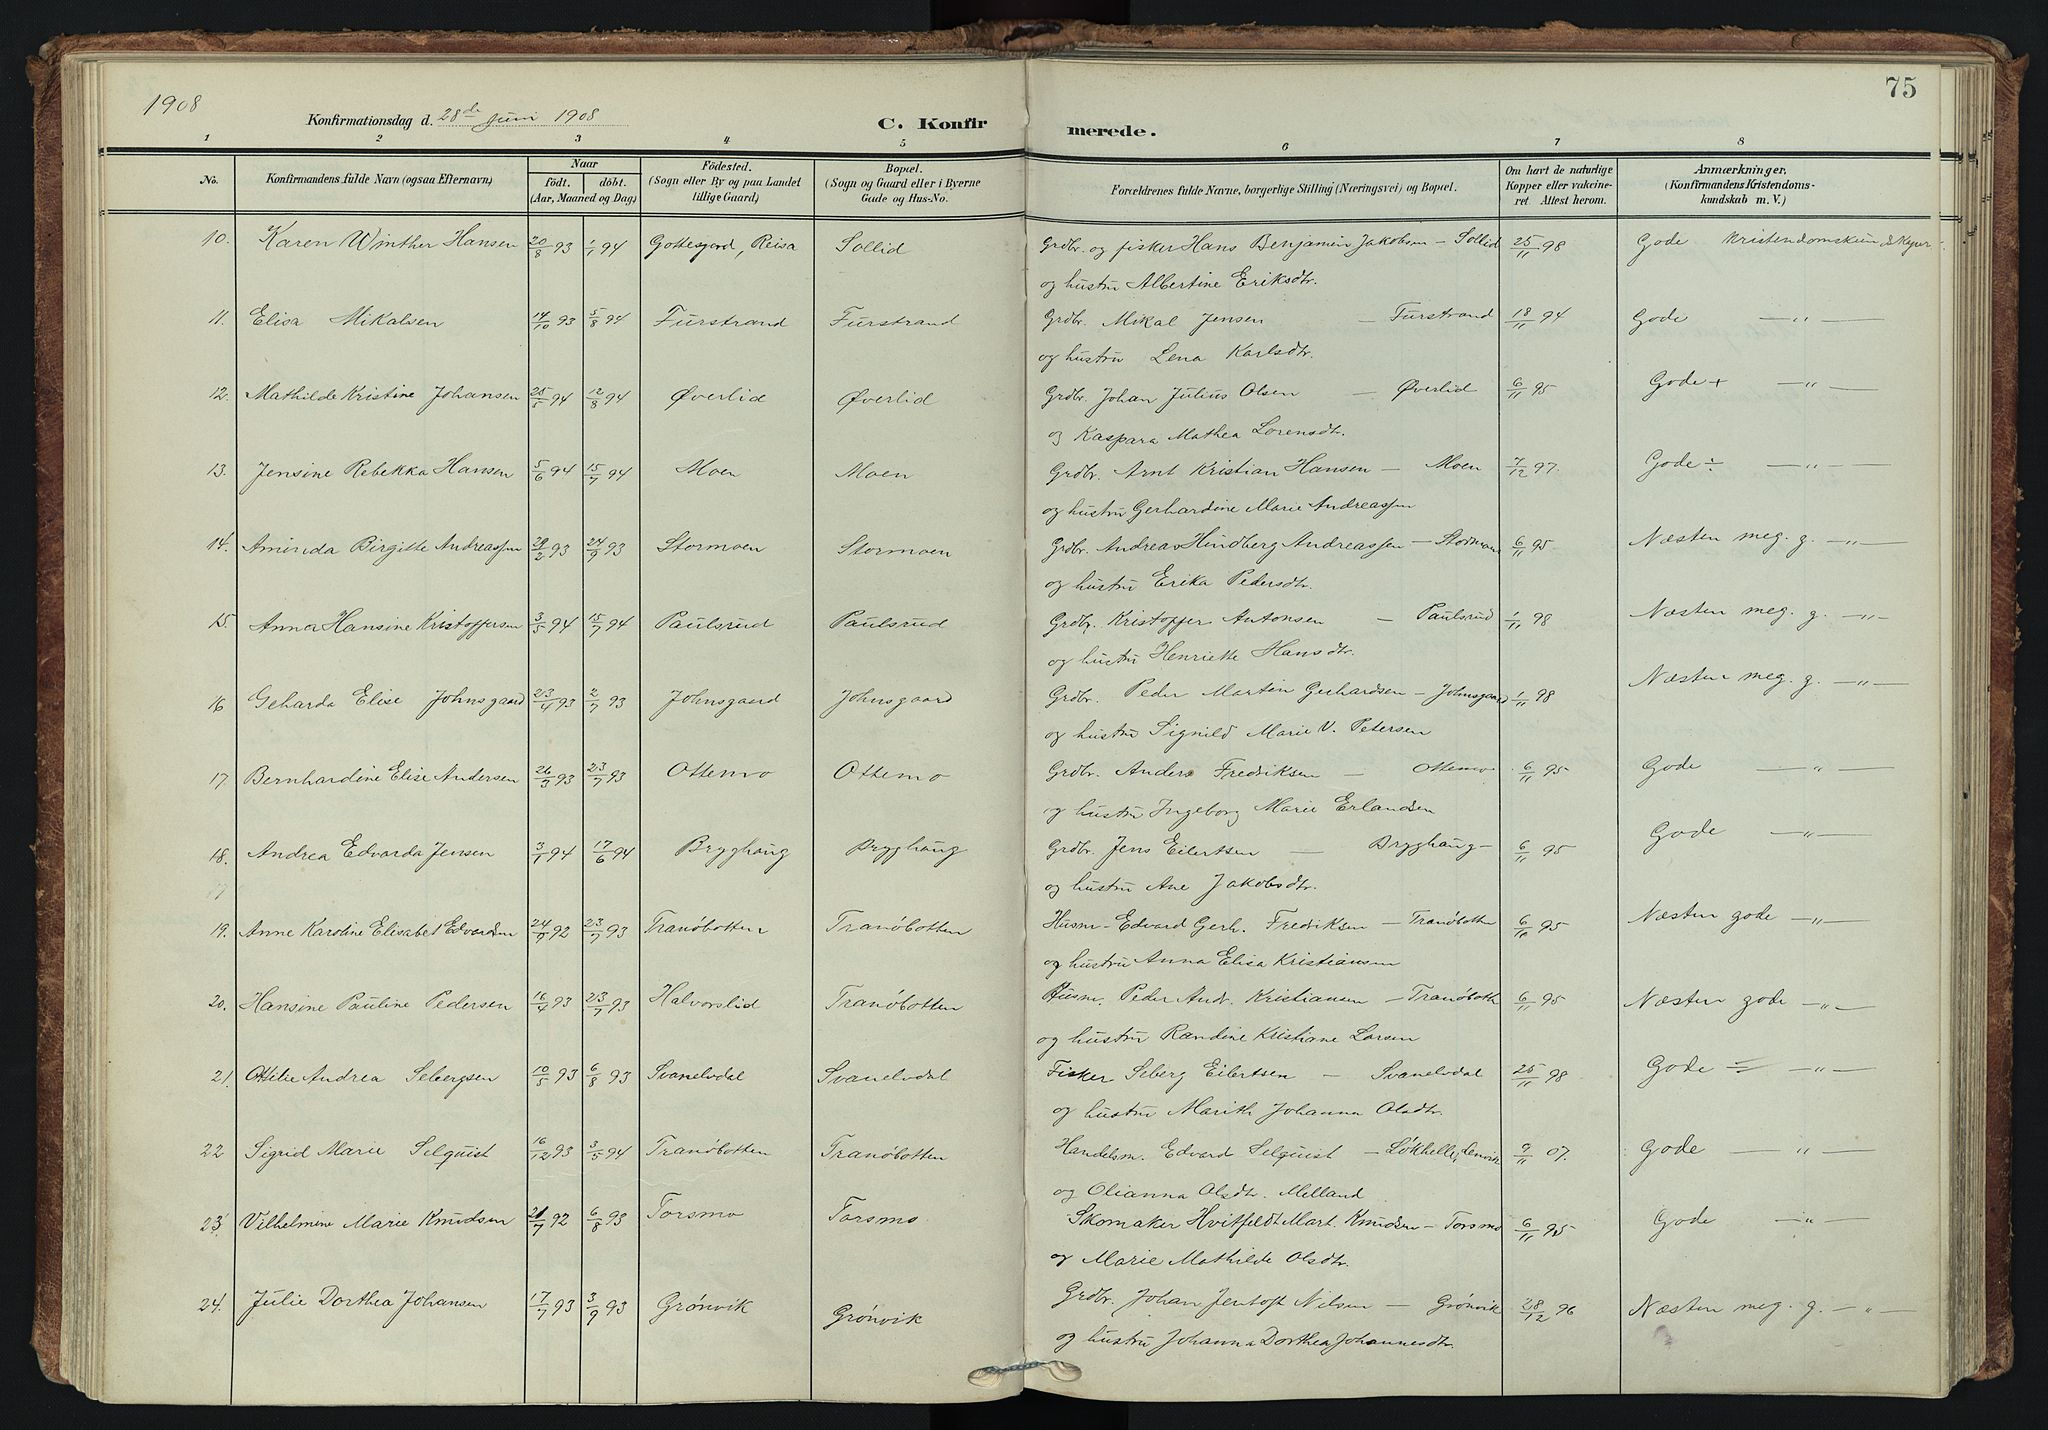 1908
75
Konfirmationsdag d. 28de Juni 1908
C. Konfirmerede.
1 2 3 4 5 6 7 8
No.
Konfirmandens fulde Navn (ogsaa Efternavn)
Naar
födt. döbt.
(Aar, Maaned og Dag)
Födested.
(Sogn eller By og paa Landet
tillige Gaard)
Bopæl.
(Sogn og Gaard eller i Byerne
Gade og Hus-No.
Forældrenes fulde Navne, borgerlige Stilling (Næringsvei) og Bopæl.
Om havt de naturlige
Kopper eller vakcine-
ret Attest herom.
Anmærkninger,
(Konfirmandens Kristendoms-
kundskab m. V.)
10. Karen Winther Hansen 20/8 93 1/1 94 Gottesjord, Reisa Sollid Grdbr. og fisker Hans Benjamin Jakobsen – Sollid 25/11 98 Gode
og hustru Albertine Eriksdtr.
11. Elisa Mikalsen 14/10 93 5/8 94 Furstrand Furstrand Grdbr. Mikal Jensen – Furstrand 18/11 94 Gode —„—
og hustru Lena Karlsdtr.
12. Mathilde Kristine Johansen 25/5 94 12/8 94 Øverlid Øverlid Grdbr. Johan Julius Olsen – Øverlid 6/11 95 Gode + —„—
og Kaspara Mathea Lorensdtr.
13. Jensine Rebekka Hansen 5/6 94 15/7 94 Moen Moen Grdbr. Arnt Kristian Hansen – Moen 7/12 97. Gode ÷ —„—
og hustru Gerhardine Marie Andreassen
14. Aminda Birgitte Andreassen 29/2 93 24/9 93 Stormoen Stormoen Grdbr. Andreas Hindberg Andreassen – Stormoen 6/11 95. Næsten meg. g. —„—
og hustru Erika Pedersdtr.
15. Anna Hansine Kristoffersen 3/5 94 15/7 94 Paulsrud Paulsrud Grdbr. Kristoffer Antonsen – Paulsrud 1/11 98 Næsten meg. g. —„—
og hustru Henriette Hansdtr.
16 Geharda Elise Johnsgaard 23/4 93 2/7 93 Johnsgaard Johnsgaard Grdbr. Peder Martin Gerhardsen – Johnsgaard 1/11 98 Næsten meg. g. —„—
og hustru Signild Marie V. Petersen
17. Bernhardine Elise Andersen 26/3 93 23/7 93 Ottemo Ottemo Grdbr. Anders Fredriksen – Ottemo 6/11 95 Gode —„—
og hustru Ingeborg Marie Erlandsen
18. Andrea Edvarda Jensen 3/1 94 17/6 94 Brygghaug Brygghaug Grdbr. Jens Eilertsen – Brygghaug – 6/11 95 Gode —„—
og hustru Ane Jakobsdtr.
19. Anne Karoline Elisabet Edvardsen 24/9 92 23/7 93 Tranöbotten Tranöbotten Husm– Edvard Gerh. Fredriksen – Tranöbotten 6/11 95 Næsten gode —„—
og hustru Anna Elisa Kristiansen
20. Hansine Pauline Pedersen 16/4 93 23/7 93 Halvorslid Tranöbotten Husm. Peder Andr. Kristiansen – Tranöbott 6/11 95 Næsten gode —„—
og hustru Randine Kristiane Larsen
21. Ottilie Andrea Sebergsen 10/5 93 6/8 93 Svanelvdal Svanelvdal Fisker Seberg Eilertsen – Svanelvdal 25/11 98 Gode —„—
og hustru Marith Johanna Olsdtr.
22 Sigrid Marie Selquist 16/12 93 3/5 94 Tranöbotten Tranöbotten Handelsm. Edvard Selquist – Løkhelle, Lenvik 9/11 07. Gode —„—
og Olianna Olsdtr. Melland
23. Vilhelmine Marie Knudsen 21/7 92 6/8 93 Torsmo Torsmo Skomaker Hvitfeldt Mart. Knudsen – Torsmo 6/11 95 Gode —„—
og Marie Mathilde Olsdtr.
24. Julie Dorthea Johansen 17/7 93 3/9 93 Grönvik Grönvik Grdbr. Johan Jentoft Nilsen – Grönvik 28/12 96 Næsten meg. g. —„—
og hustru Johanna Dorthea Johannesdtr.